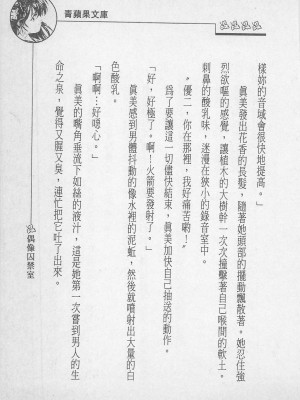 青蘋果文庫
樣妳的音域會很快地提高。」
真美發出花香的長髮，隨著她頭部的擺動飄散著。她忍住強
烈欲嘔的感覺，讓植木的大樹幹一次次撞擊著自己喉間的軟土。
刺鼻的酸乳味，迷漫在狹小的錄音室中。
〝優二，你在那裡，我好痛苦喲！〞
爲了要讓這一切儘快結束，真美加快自己抽送的動作。
「好，好極了。啊！火箭要發射了。」
真美感到男體抖動的像水裡的泥鰍，然後就噴射出大量的白
色酸乳。
「啊啊…好噁心。」
真美的嘴角垂流下如絲的液汁，這是她第一次嘗到男人的生
命之泉，覺得又腥又臭，連忙把它吐了出來。
偶像囚禁室